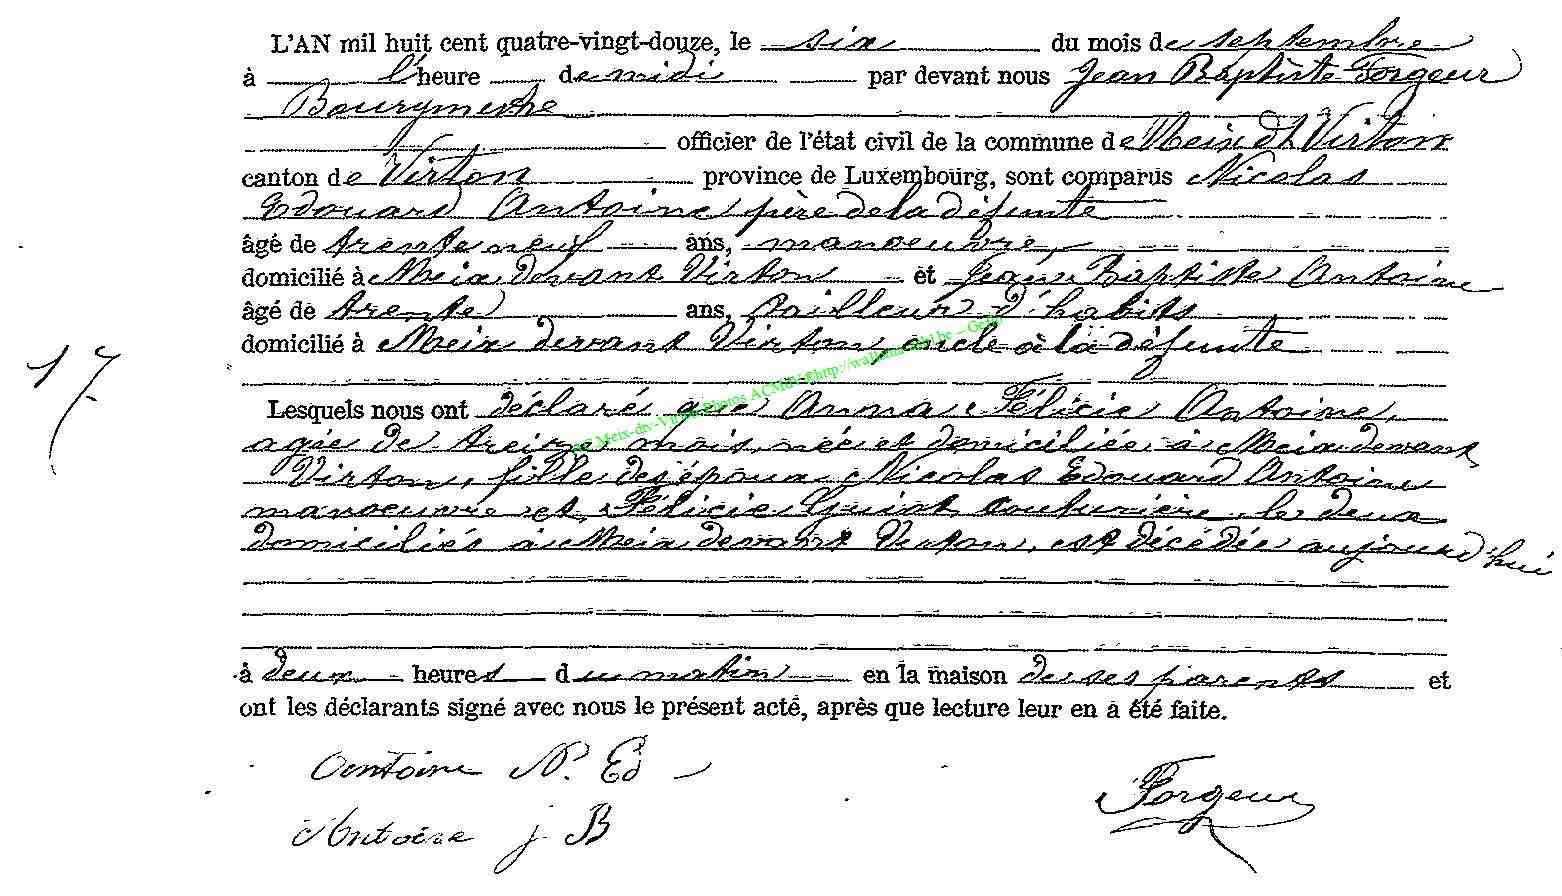 L'AN mil huit cent quatre-vingt-douze, le six du mois de septembre
à l'heure de midi par devant nous Jean Baptiste Forgeur
Bourgmestre
officier de l'état civil de la commune de Meix dt Virton
canton de Virton province de Luxembourg, sont comparus Nicolas
Edouard Antoine père de la défunte
âgé de trente neuf ans, manoeuvre,
domicilié à Meix devant Virton et Jean Baptiste Antoine
âgé de trente ans, tailleur d'habits
domicilié à Meix devant Virton, oncle à la défunte
17
Lesquels nous ont déclaré que Anna Félicie Antoine,
agée de treize mois, née et domiciliée à Meix devant
Virton, fille des époux Nicolas Edouard Antoine
manoeuvre et Félicie Guiot couturière, les deux
domiciliés à Meix devant Virton, est décédée aujourd'hui
à deux heures du matin en la maison de ses parents et
ont les déclarants signé avec nous le présent acté, après que lecture leur en a été faite.
Antoine N. Ed
Forgeur
Antoine j B